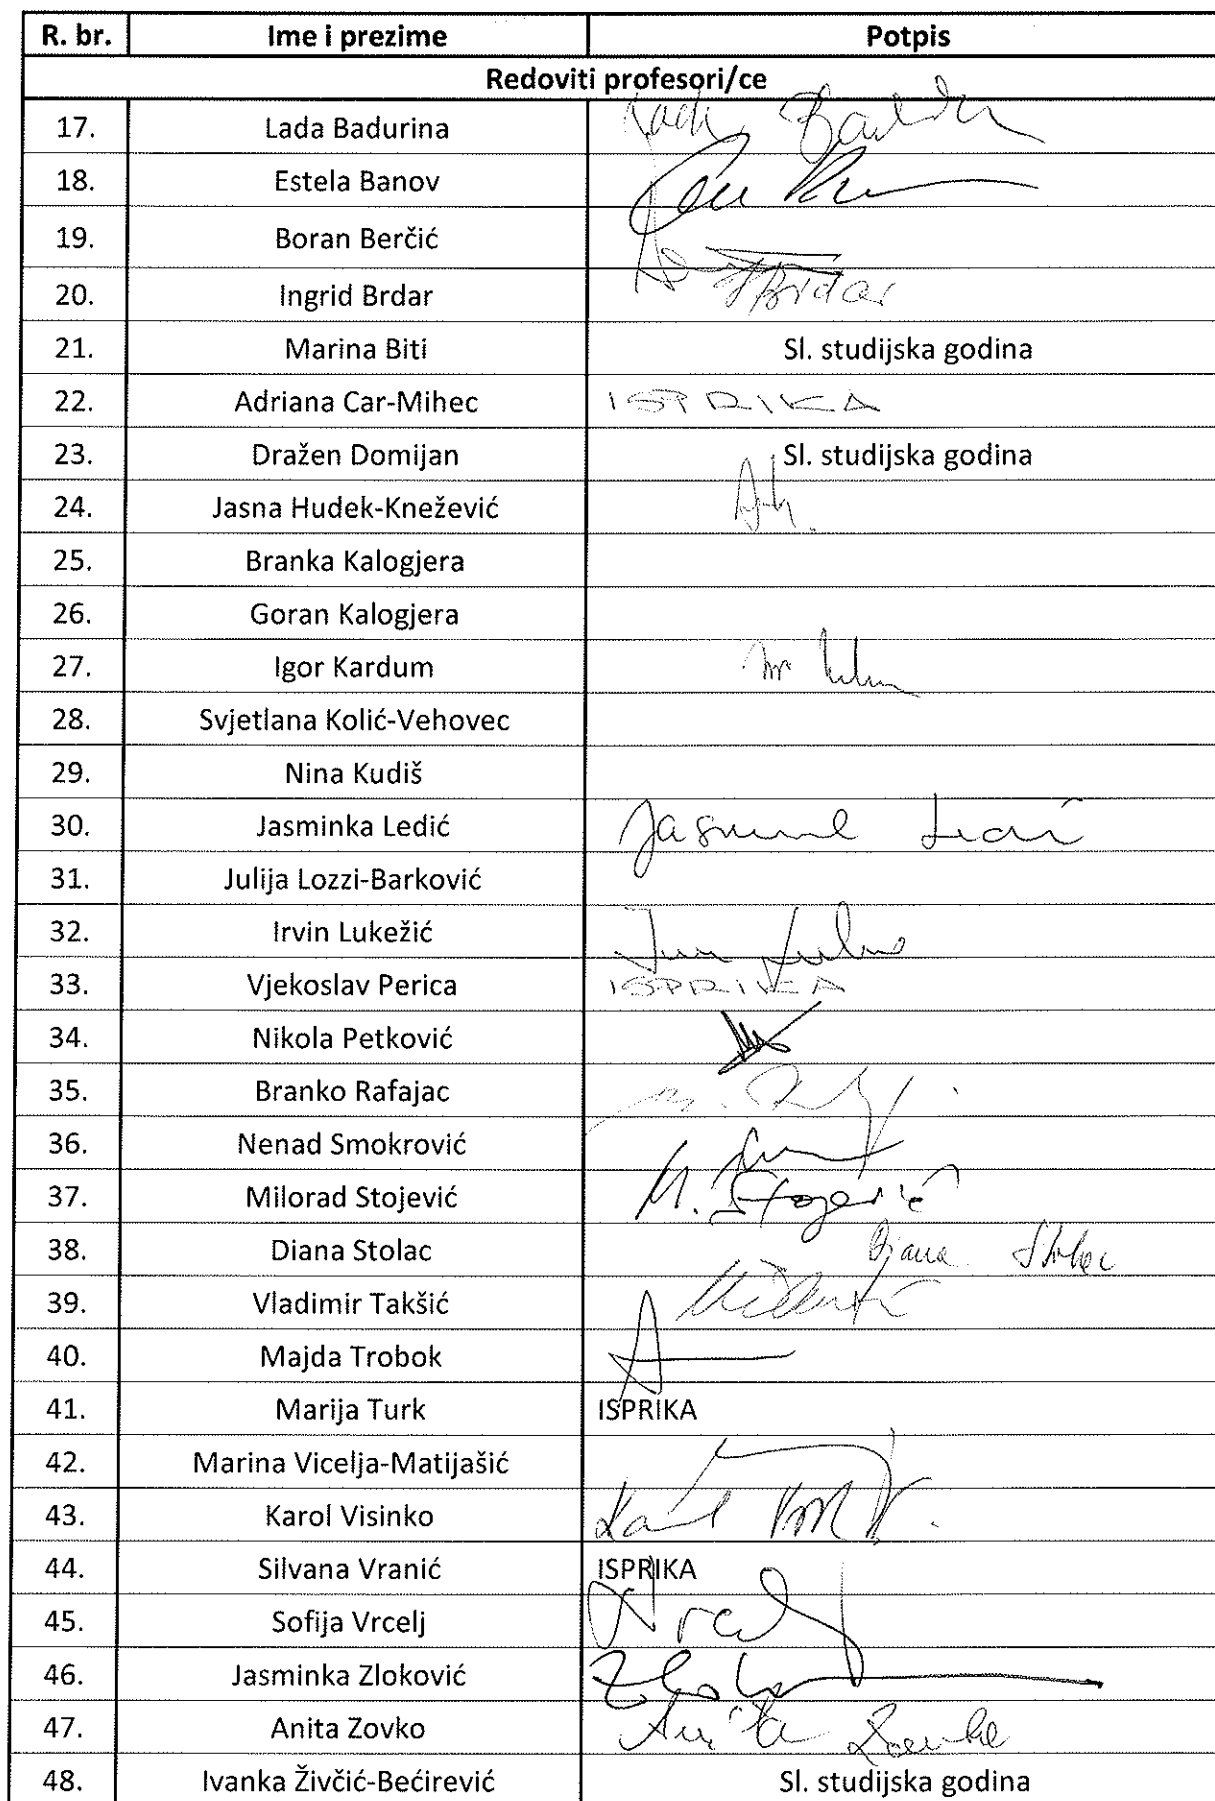 R. br. Ime i prezime Potpis
Redoviti profesori/ce
17. Lada Badurina
18. Estela Banov
19. Boran Berčić
20. Ingrid Brdar Brdar
21. Marina Biti Sl. studijska godina
22. Adriana Car-Mihec ISPRIKA
23. Dražen Domijan Sl. studijska godina
24. Jasna Hudek-Knežević
25. Branka Kalogjera
26. Goran Kalogjera
27. Igor Kardum
28. Svjetlana Kolić-Vehovec
29. Nina Kudiš
30. Jasminka Ledić
31. Julija Lozzi-Barković
32. Irvin Lukežić
33. Vjekoslav Perica ISPRIKA
34. Nikola Petković
35. Branko Rafajac
36. Nenad Smokrović
37. Milorad Stojević M. Stojević
38. Diana Stolac Diana Stolac
39. Vladimir Takšić
40. Majda Trobok
41. Marija Turk ISPRIKA
42. Marina Vicelja-Matijašić
43. Karol Visinko
44. Silvana Vranić ISPRIKA
45. Sofija Vrcelj
46. Jasminka Zloković
47. Anita Zovko Anita
48. Ivanka Živčić-Bećirević Sl. studijska godina